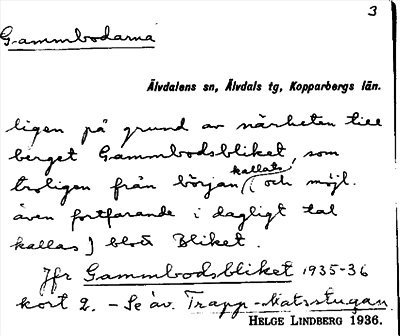 3
Gammbodarna
Älvdalens sn, Älvdals tg, Kopparbergs län.
ligen på grund av närheten till
berget Gammbodsbliket, som
troligen från början (kallats och möjl.
även fortfarande i dagligt tal
kallas) blott Bliket.
Jfr Gammbodsbliket 1935-36
kort 2. - Se äv. Trapp-Matsstugan.
HELGE LINDBERG 1936.